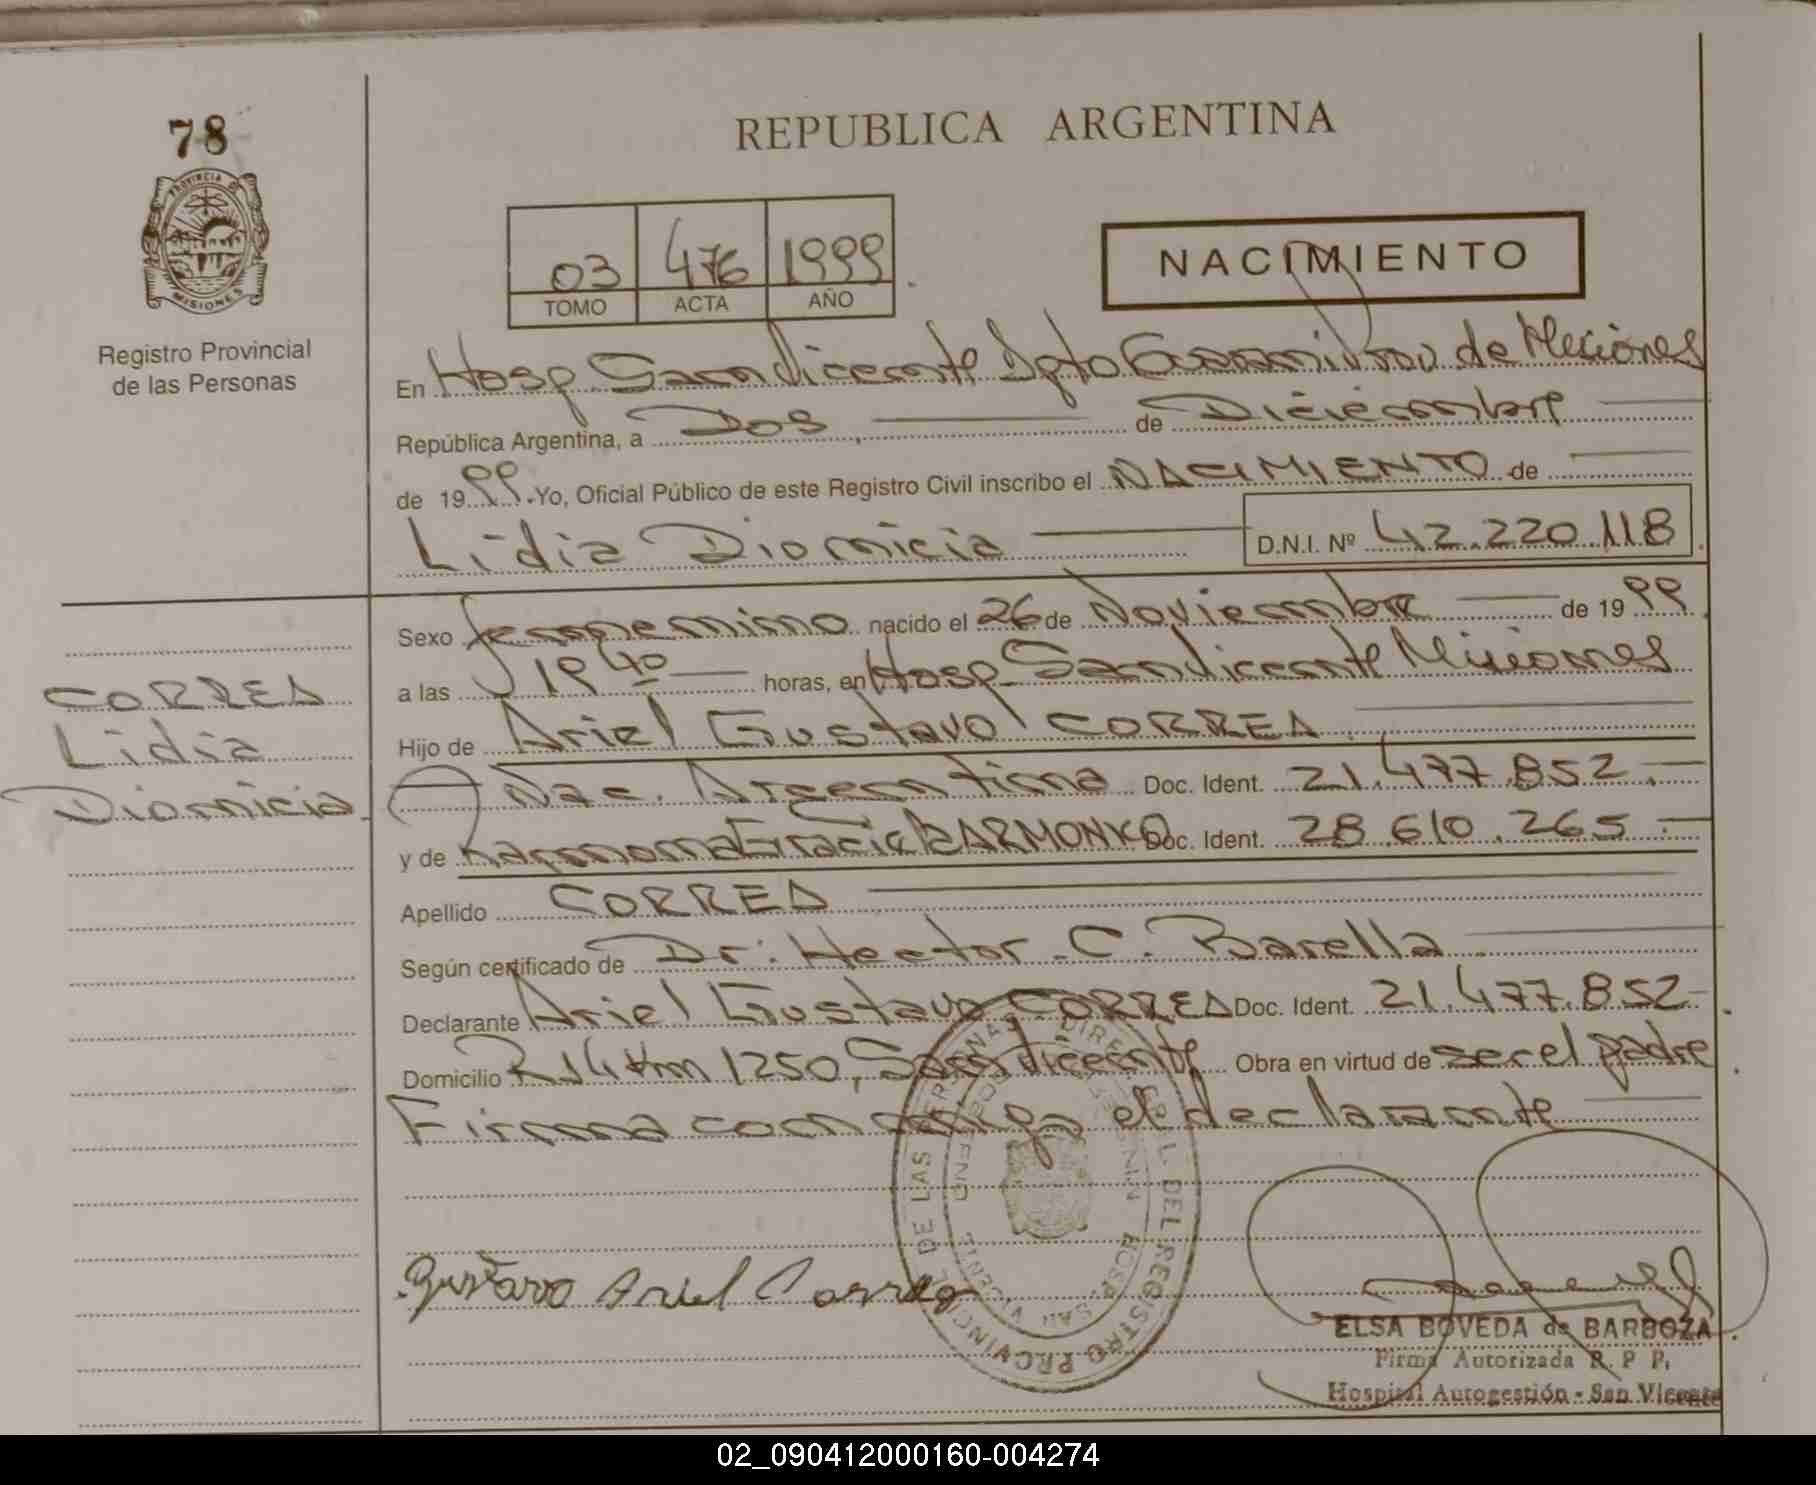 78
PROVINCIA DE
MISIONES
Registro Provincial
de las Personas
REPUBLICA ARGENTINA
03 476 1999
TOMO ACTA AÑO
NACIMIENTO
En Hosp San Vicente Dpto Guaraní Prov. de Misiones
República Argentina, a Dos de Diciembre
de 1999. Yo, Oficial Público de este Registro Civil inscribo el NACIMIENTO de
Lidia Dionicia D.N.I. Nº 42.220.118
Sexo femenino nacido el 26 de Noviembre de 1999
a las 19 40 horas, en Hosp San Vicente Misiones
Hijo de Ariel Gustavo CORREA
Nac. Argentina Doc. Ident. 21.477.852.-
y de Ramona Graciela Doc. Ident. 28.610.265.-
Apellido CORREA
Según certificado de Dr: Hector C. Barella
Declarante Ariel Gustavo CORREA Doc. Ident. 21.477.852-
Domicilio R 14 Km 1250, San Vicente Obra en virtud de ser el padre
Firma conmigo el declarante
CORREA
Lidia
Dionicia
Gustavo Ariel Correa
DE LAS PERSONAS DEL REGISTRO PROVINCIAL
HOSP. SAN VICENTE
ELSA BOVEDA de BARBOZA
Firma Autorizada R. P. P.
Hospital Autogestión - San Vicente
02_090412000160-004274